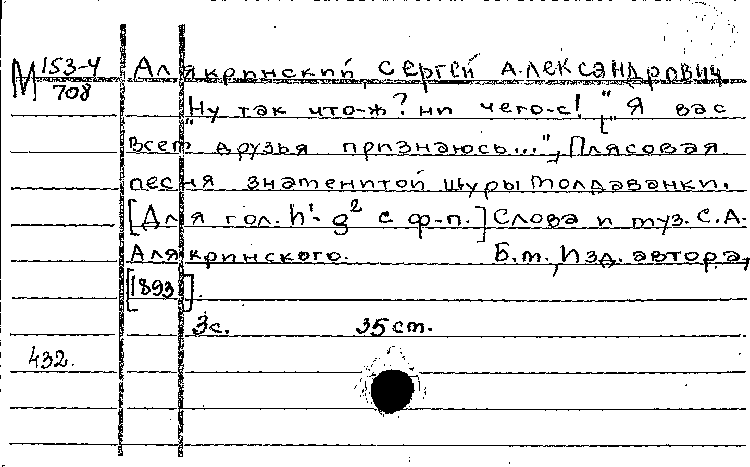 М 153-4
708
Алякринский, Сергей Александрович
"Ну так что-ж? ни чего-с! ["Я вас
всем друзья признаюсь...", Плясовая
песня знаменитой Шуры Молдаванки.
[Для гол. h¹-g² с ф-п.] Слова и муз. С.А.
Алякринского. Б.м., Изд. автора,
[1893].
3с. 35 cm.
432.